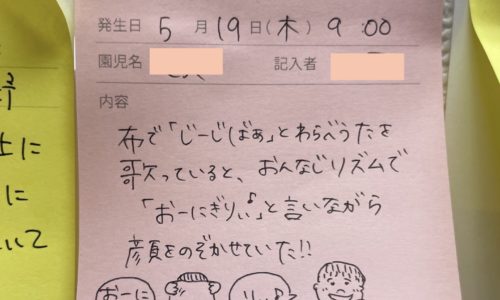 発生日 5月19日(木) 9:00
園児名 記入者
内容
布で「じーじばぁ」とわらべうたを
歌っていると、おんなじリズムで
「おーにぎりぃ♪」と言いながら
顔をのぞかせていた!!
おーに
りぃ♪
上に
に
いて